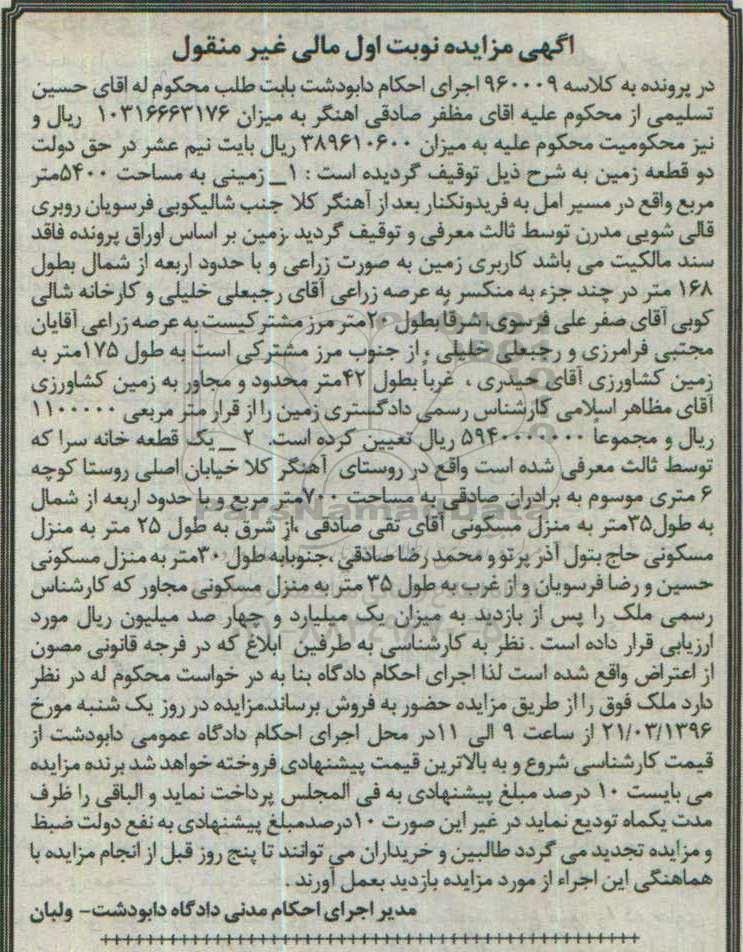 آگهی مزایده نوبت اول مالی غیر منقول
در پرونده به کلاسه ۹۶۰۰۰۹ اجرای احکام دابودشت بابت طلب محکوم له اقای حسین
تسلیمی از محکوم علیه اقای مظفر صادقی اهنگر به میزان ۱۰۳۱۶۶۶۳۱۷۶ ریال و
نیز محکومیت محکوم علیه به میزان ۳۸۹۶۱۰۶۰۰ ریال بابت نیم عشر در حق دولت
دو قطعه زمین به شرح ذیل توقیف گردیده است : ۱_ زمینی به مساحت ۵۴۰۰متر
مربع واقع در مسیر امل به فریدونکنار بعد از آهنگر کلا جنب شالیکوبی فرسویان روبری
قالی شویی مدرن توسط ثالث معرفی و توقیف گردید .زمین بر اساس اوراق پرونده فاقد
سند مالکیت می باشد کاربری زمین به صورت زراعی و با حدود اربعه از شمال بطول
۱۶۸ متر در چند جزء به منکسر به عرصه زراعی آقای رجبعلی خلیلی و کارخانه شالی
کوبی آقای صفر علی فرسوی، شرقا بطول ۲۰متر مرز مشترکیست به عرصه زراعی آقایان
مجتبی فرامرزی و رجبعلی خلیلی ، از جنوب مرز مشترکی است به طول ۱۷۵متر به
زمین کشاورزی آقای حیدری ، غرباً بطول ۴۲متر محدود و مجاور به زمین کشاورزی
آقای مظاهر اسلامی کارشناس رسمی دادگستری زمین را از قرار متر مربعی ۱۱۰۰۰۰۰
ریال و مجموعاً ۵۹۴۰۰۰۰۰۰۰ ریال تعیین کرده است. ۲ _ یک قطعه خانه سرا که
توسط ثالث معرفی شده است واقع در روستای آهنگر کلا خیابان اصلی روستا کوچه
۶ متری موسوم به برادران صادقی به مساحت ۷۰۰متر مربع و با حدود اربعه از شمال
به طول۳۵متر به منزل مسکونی آقای تقی صادقی ،از شرق به طول ۲۵ متر به منزل
مسکونی حاج بتول آذر پرتو و محمد رضا صادقی ،جنوبابه طول ۳۰متر به منزل مسکونی
حسین و رضا فرسویان و از غرب به طول ۳۵ متر به منزل مسکونی مجاور که کارشناس
رسمی ملک را پس از بازدید به میزان یک میلیارد و چهار صد میلیون ریال مورد
ارزیابی قرار داده است . نظر به کارشناسی به طرفین ابلاغ که در فرجه قانونی مصون
از اعتراض واقع شده است لذا اجرای احکام دادگاه بنا به در خواست محکوم له در نظر
دارد ملک فوق را از طریق مزایده حضور به فروش برساند.مزایده در روز یک شنبه مورخ
۲۱/۰۳/۱۳۹۶ از ساعت ۹ الی ۱۱در محل اجرای احکام دادگاه عمومی دابودشت از
قیمت کارشناسی شروع و به بالاترین قیمت پیشنهادی فروخته خواهد شد برنده مزایده
می بایست ۱۰ درصد مبلغ پیشنهادی به فی المجلس پرداخت نماید و الباقی را ظرف
مدت یکماه تودیع نماید در غیر این صورت ۱۰درصدمبلغ پیشنهادی به نفع دولت ضبط
و مزایده تجدید می گردد طالبین و خریداران می توانند تا پنج روز قبل از انجام مزایده با
هماهنگی این اجراء از مورد مزایده بازدید بعمل آورند .
مدیر اجرای احکام مدنی دادگاه دابودشت- ولبان
ParsNamadData